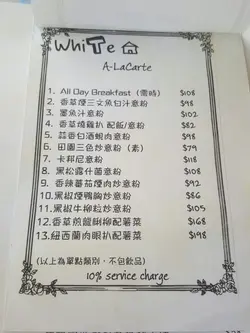 WhiTe
A-LaCarte
1. All Day Breakfast (需時) $108
2. 香草煙三文魚白汁意粉 $98
3. 墨魚汁意粉 $102
4. 香草燒雞扒 配飯/意粉 $82
5. 蒜香白酒蜆肉意粉 $98
6. 田園三色炒意粉 (素) $79
7. 卡邦尼意粉 $118
8. 黑松露什菌意粉 $108
9. 香辣蕃茄煙肉炒意粉 $92
10.黑椒煙鴨胸炒意粉 $86
11.黑椒牛柳粒炒意粉 $105
12.香草煎龍脷柳配薯菜 $168
13.紐西蘭肉眼扒配薯菜 $198
(以上為單點類別，不包飲品)
10% service charge